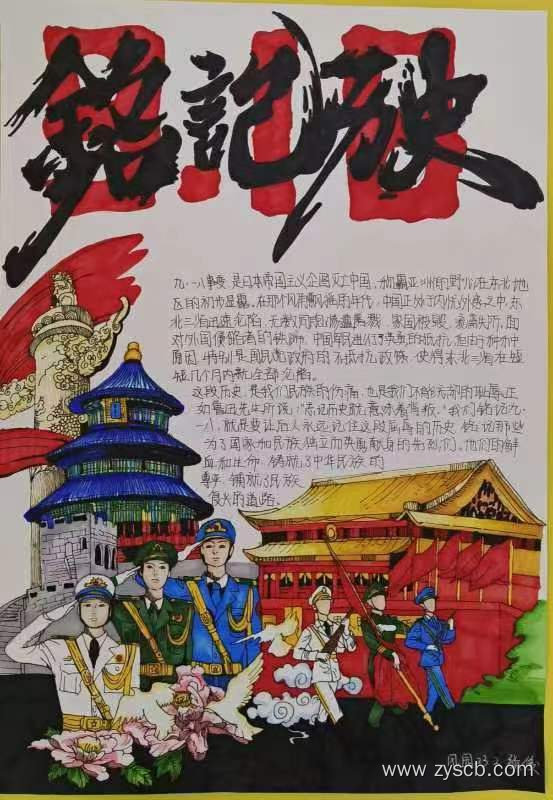 铭记历史
九一八
九·一八事变是日本帝国主义企图灭亡中国，称霸亚州的野心在东北地
区的初步显露，在那个风雨飘摇的年代，中国正处于内忧外患之中，东
北三省迅速沦陷，无数同胞惨遭屠戮，家园被毁，流离失所，面
对外国侵略者的铁蹄，中国军民进行了英勇的抵抗，但由于种种
原因，特别是国民党政府的不抵抗政策，使得东北三省在短
短几个月内就全部沦陷。
这段历史，是我们民族的伤痛，也是我们不能忘却的耻辱，正
如鲁迅先生所说："忘记历史就意味着背叛。"我们铭记九·
一八，就是要让后人永远记住这段屈辱的历史，铭记那些
为了国家和民族独立而英勇献身的先烈们。他们的鲜
血和生命，铸就了中华民族的
尊严，铺就了民族
复兴的道路。
www.zyscb.com